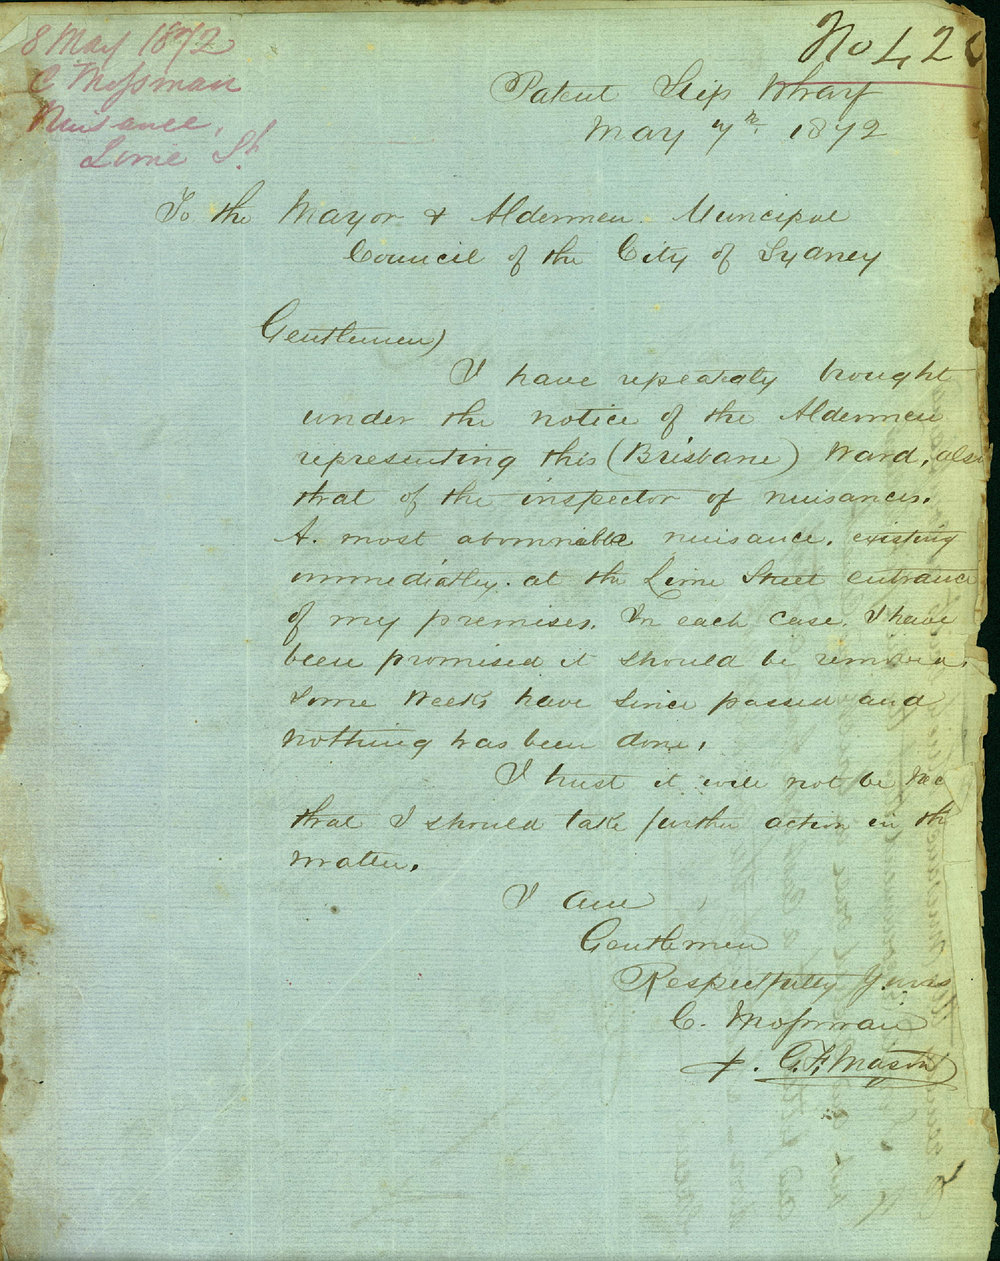 8 May 1872
C Mossman
Nuisance,
Lime St
No 42
Patent Slip Wharf
May 7th 1872
To the Mayor & Aldermen Muncipal
Council of the City of Sydney
Gentlemen)
I have repeatdly brought
under the notice of the Aldermen
representing this (Brisbane) Ward, also
that of the inspector of nuisances.
A. most abominable nuisance. existing
immediatley. at the Lime Street entrance
of my premises. In each case. I have
been promised it should be removed.
Some Weeks have since passed and
nothing has been done.
I trust it will not be Nec
that I should take further action in the
matter.
I am
Gentlemen
Respectfully Yours
C. Mossman
p. G. F. Mason